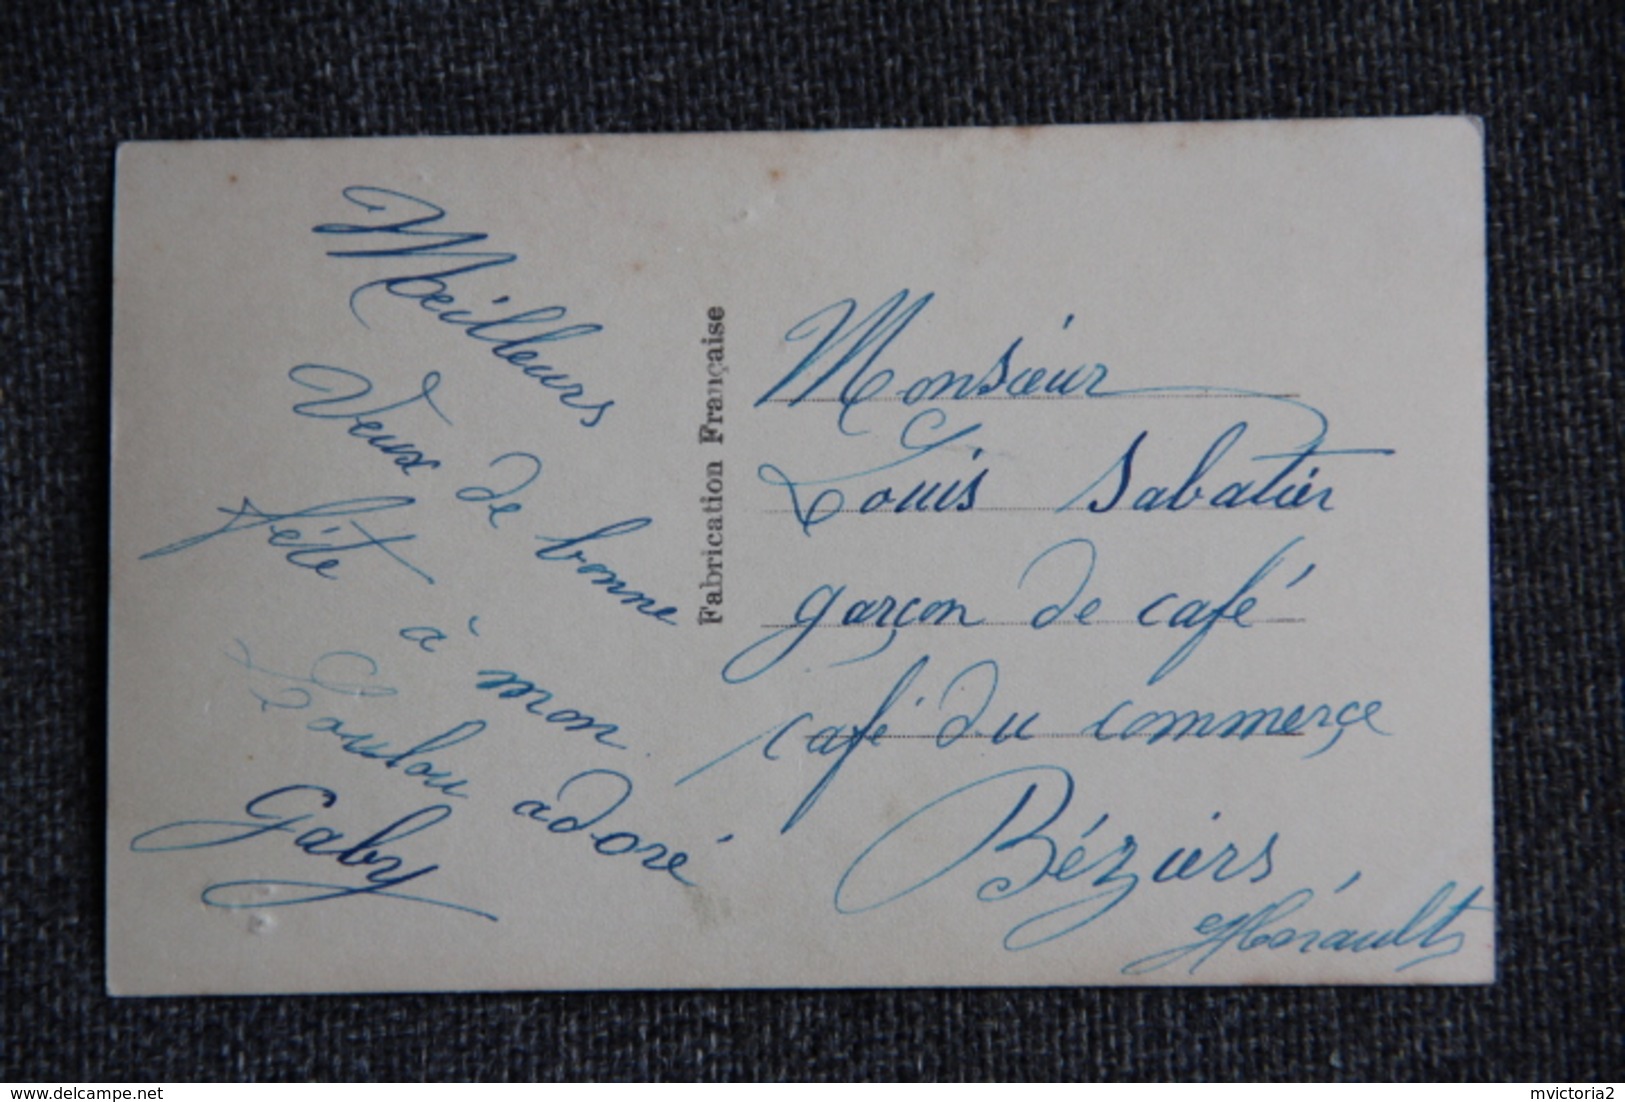 Meilleurs
Veux de bonne
fête à mon
Loulou adoré
Gaby
Fabrication Française
Monsieur
Louis Sabatier
garçon de café
café du commerçe
Béziers
Hérault
www.delcampe.net
mvictoria2